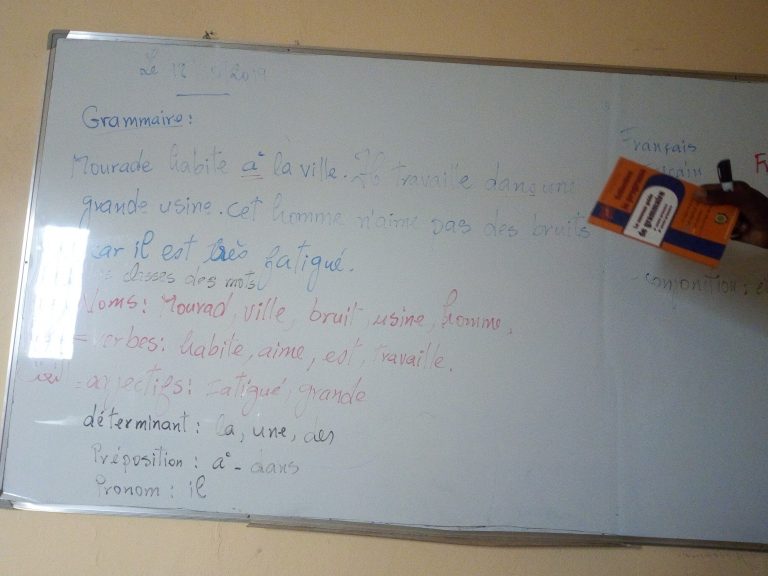 Le 12 5/2019
Grammaire:
Mourade habite à la ville. Il travaille dans une
grande usine. cet homme n'aime pas des bruits
car il est très fatigué.
classes des mots
Noms: Mourad, ville, bruit, usine, homme,
= verbes: habite, aime, est, travaille.
= adjectifs: Fatigué, grande
déterminant: la, une, des
Préposition: à - dans
Pronom: il
Français
Le nouveau guide
de grammaire
conjonction: